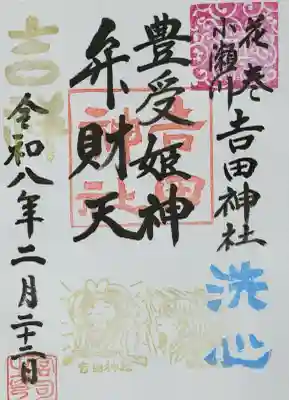 花巻
小瀬川
吉田神社
洗心
豊受姫神
弁財天
吉田神社
吉祥
令和八年二月二十二日
吉田神社